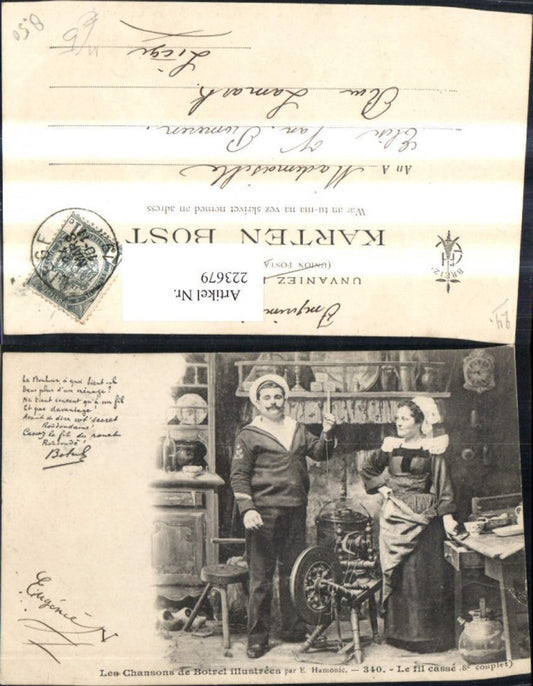 8.50
Liège
Rue Lamark.
Elise Van
An A Mademoiselle
War an tu-ma na vez skrivet nemed an adress
KARTEN BOST
(UNION POSTA
UNVANIEZ
Imprimé
BREIZ
Artikel Nr.
223679
Le Bonheur, à quoi tient-il
Dans plus d'un ménage?
Ne tient souvent qu'à un fil
Et pas davantage
Avant de dire cet secret
Redondaine!
Cassez le fil du rouet
Redondé!
Botrel
Eugénie
Les Chansons de Botrel illustrées par E. Hamonic. — 340. - Le fil cassé (8e couplet)